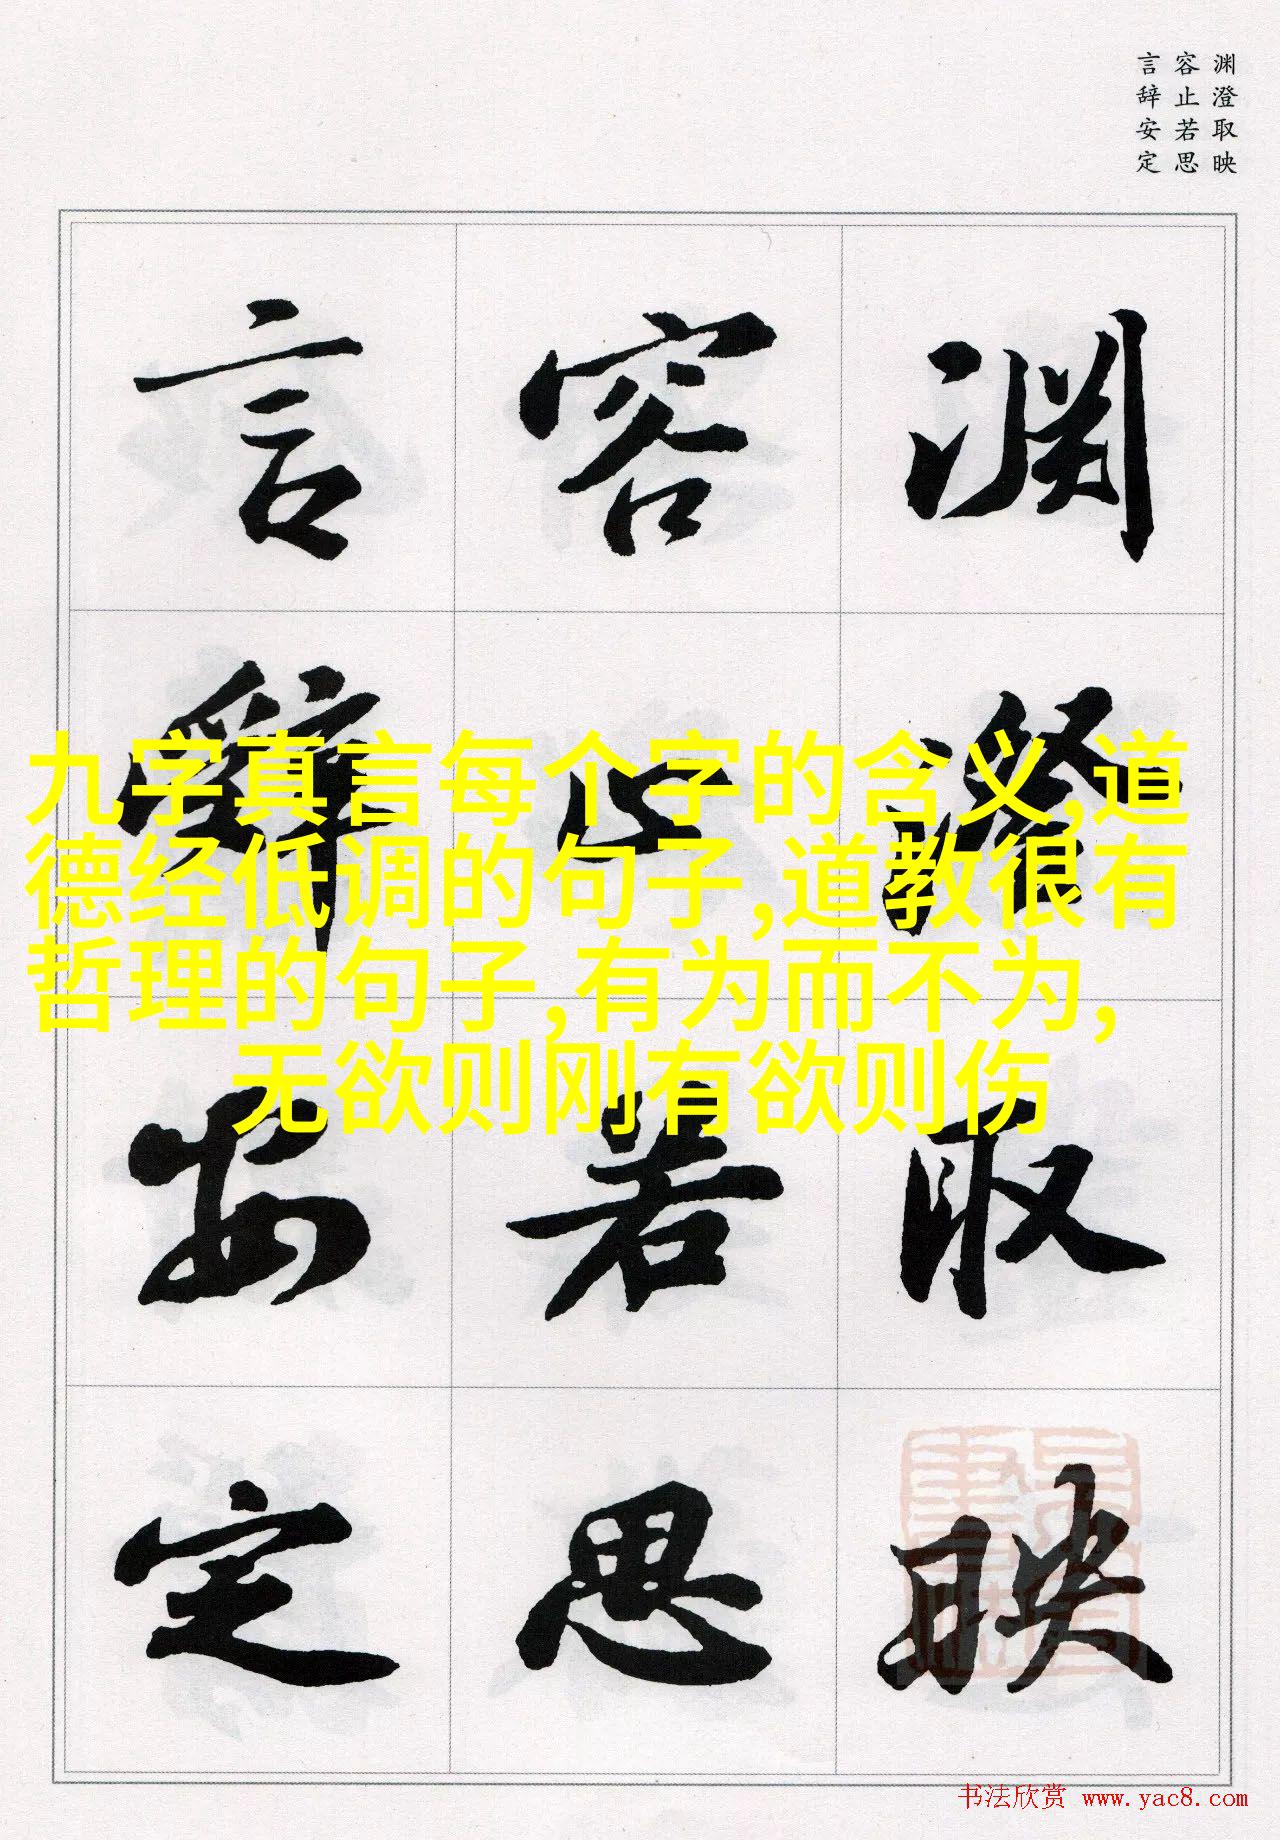 渊澄取映
容止若思
言辞安定
渊澄取映
容止若思
言辞安定
九字真言每个字的含义,道
德经低调的句子,道教很有
哲理的句子,有为而不为,
无欲则刚有欲则伤
书法欣赏 www.yac8.com